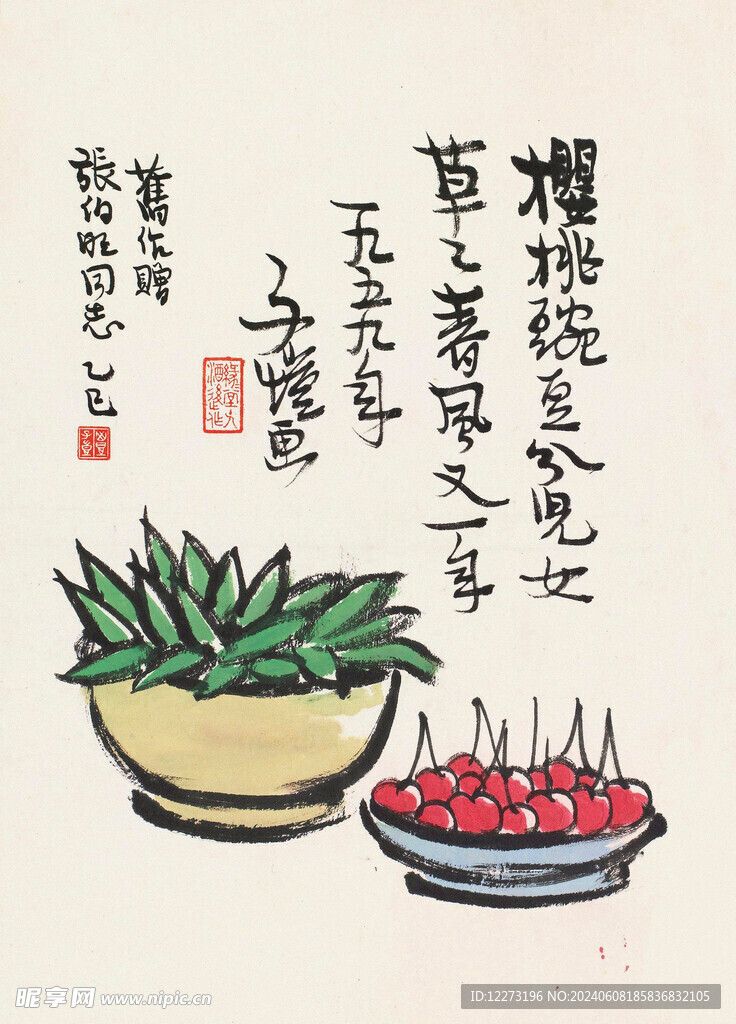 櫻桃豌豆分兒女
草々春風又一年
一九五九年
子愷画
舊作贈
張伯旺同志 乙巳
昵享网 www.nipic.cn
ID:12273196 NO:20240608185836832105